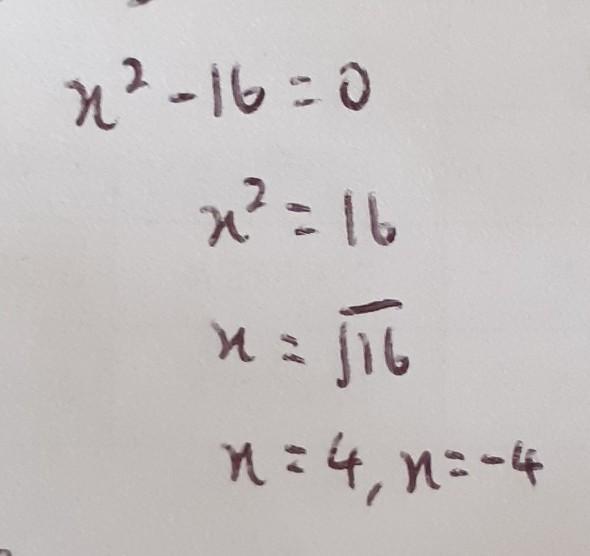 x² - 16 = 0
x² = 16
x = √16
x = 4, x = -4